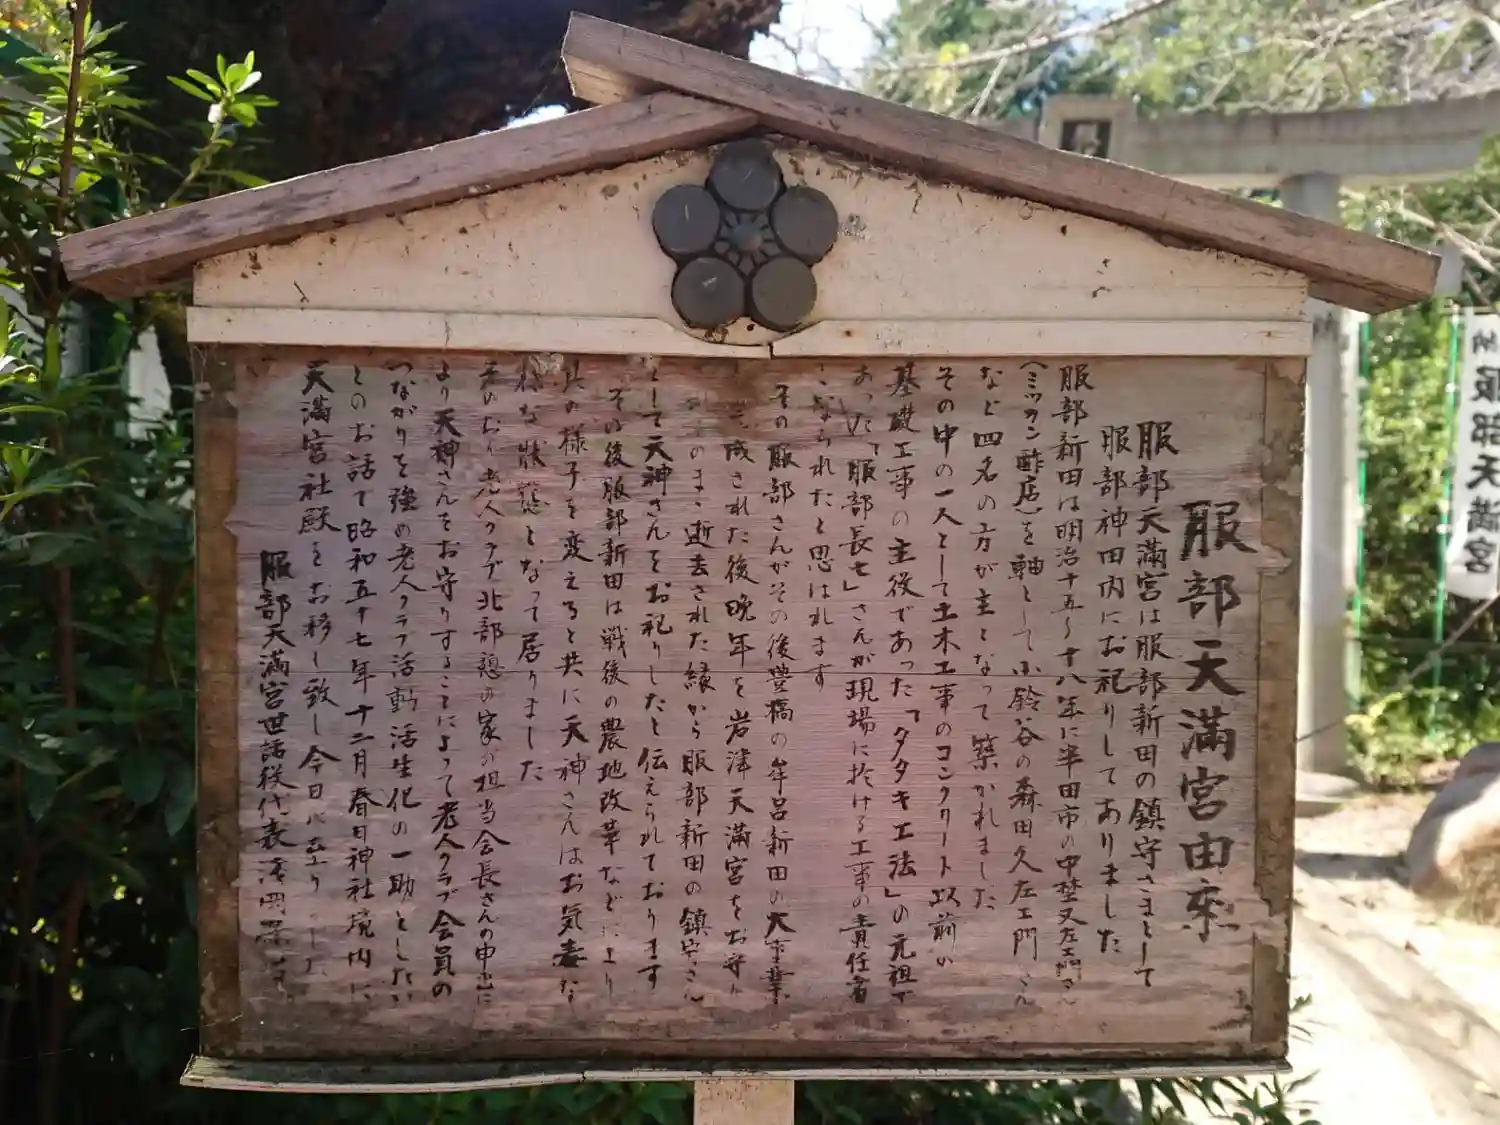 服部天満宮由来
服部天満宮は服部新田の鎮守さまとして
服部神田内にお祀りしてありました
服部新田は明治十五〜十八年に半田市の中埜又左エ門さん
(ミツカン酢店)を軸として小鈴谷の森田久左エ門さん
など四名の方が主となって築かれました
その中の一人として土木工事のコンクリート以前の
基礎工事の主役であった「タタキ工法」の元祖で
あった「服部長七」さんが現場に於ける工事の責任者
になられたと思はれます
その服部さんがその後豊橋の牟呂新田の大事業
成された後晩年を岩津天満宮をお守り
のまゝ逝去された縁から服部新田の鎮守さん
として天神さんをお祀りしたと伝えられております
その後服部新田は戦後の農地改革などにより
其の様子を変えると共に天神さんはお気毒な
様な状態となって居りました
そのおり老人クラブ北部憩の家の担当会長さんの申出に
より天神さんをお守りすることによって老人クラブ会員の
つながりを強め老人クラブ活動活生化の一助としたい
とのお話で昭和五十七年十二月春日神社境内に
天満宮社殿をお移し致し今日に至りました
服部天満宮世話役代表 浅岡
納 服部天満宮